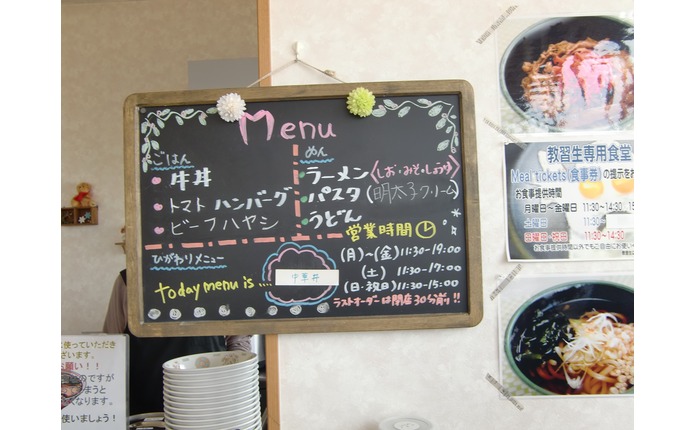 Menu
ごはん
牛丼
トマトハンバーグ
ビーフハヤシ
めん
ラーメン〈しお・みそ・しょうゆ〉
パスタ(明太子クリーム)
うどん
営業時間
(月)～(金)11:30-19:00
(土) 11:30-17:00
(日・祝日)11:30-15:00
ラストオーダーは閉店30分前!!
ひがわりメニュー
today menu is ....
中華丼
教習生専用食堂
Meal tickets(食事券)の提示をお
お食事提供時間
月曜日～金曜日 11:30~14:30
土曜日 11:30~14:30
日曜日・祝日 11:30~14:30
お食事提供時間以外でもご自由にお使い
使っていただき
ざいます。
お願い!!
のですが
まうと
なります。
使いましょう!